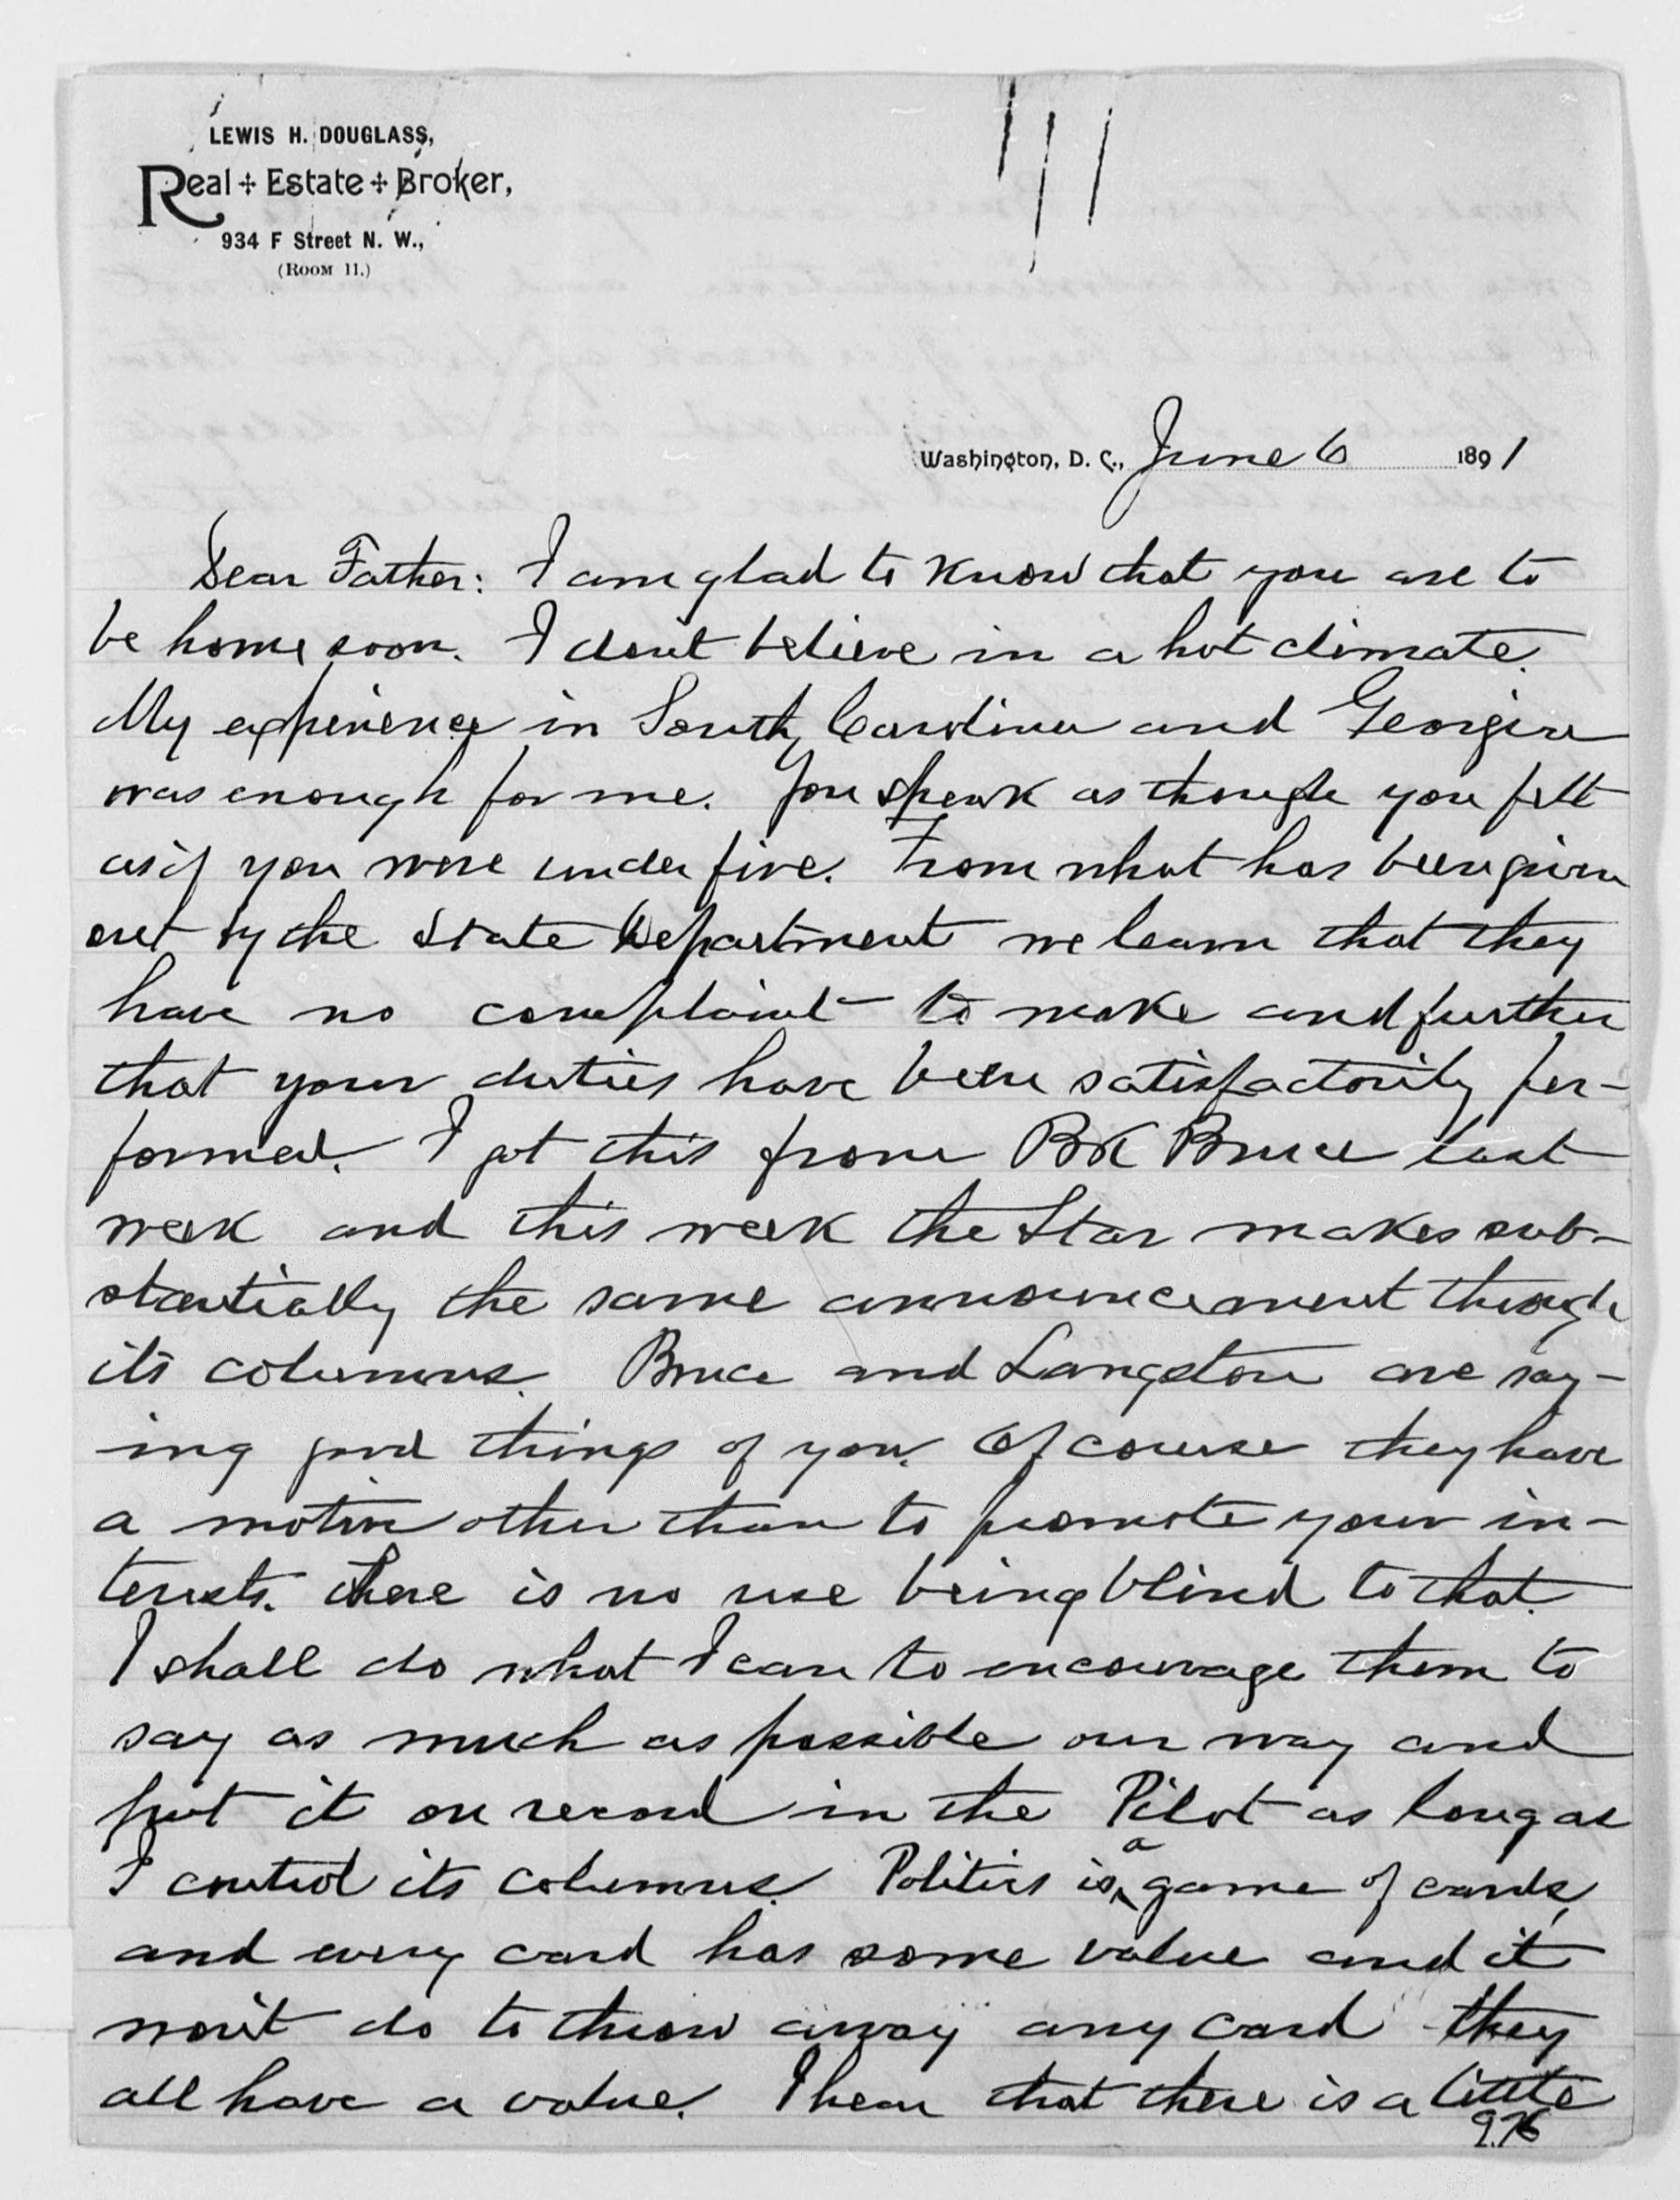 LEWIS H. DOUGLASS,
Real + Estate + Broker,
934 F Street N. W.,
(ROOM 11.)
Washington, D. C., June 6 1891
Dear Father: I am glad to know that you are to
be home soon. I dont believe in a hot climate.
My experience in South Carolina and Georgia
was enough for me. You speak as though you felt
as if you were under fire. From what has been given
out by the State Department we learn that they
have no complaint to make and further
that your duties have been satisfactorily per-
formed. I got this from BK Bruce last
week and this week the Star makes sub-
stantially the same announcement through
its columns. Bruce and Langston are say-
ing good things of you. Of course they have
a motive other than to promote your in-
terests. there is no use being blind to that.
I shall do what I can to encourage them to
say as much as possible our way and
put it on record in the Pilot as long as
I control its columns. Politics is a game of cards,
and every card has some value and it
won't do to throw away any card they
all have a value. I hear that there is a little